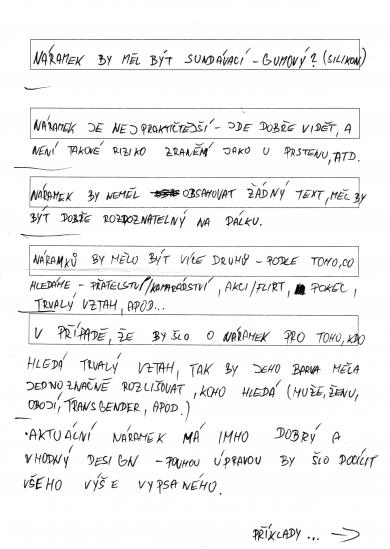 NÁRAMEK BY MĚL BÝT SUNDÁVACÍ - GUMOVÝ? (SILIKON)
NÁRAMEK JE NEJPRAKTIČTEJŠÍ - JDE DOBŘE VIDĚT, A
NENÍ TAKOVÉ RIZIKO ZRANĚNÍ JAKO U PRSTENU, ATD.
NÁRAMEK BY NEMĚL OBSAHOVAT ŽÁDNÝ TEXT, MĚL BY
BÝT DOBŘE ROZPOZNATELNÝ NA DÁLKU.
NÁRAMKŮ BY MĚLO BÝT VÍCE DRUHŮ - PODLE TOHO, CO
HLEDÁME - PŘÁTELSTVÍ/KAMARÁDSTVÍ, AKCI/FLIRT, POKEC,
TRVALÝ VZTAH, APOD...
V PŘÍPADĚ, ŽE BY ŠLO O NÁRAMEK PRO TOHO, KDO
HLEDÁ TRVALÝ VZTAH, TAK BY JEHO BARVA MĚLA
JEDNOZNAČNĚ ROZLIŠOVAT, KOHO HLEDÁ (MUŽE, ŽENU,
OBOJÍ, TRANSGENDER, APOD.)
• AKTUÁLNÍ NÁRAMEK MÁ IMHO DOBRÝ A
VHODNÝ DESIGN - POUHOU ÚPRAVOU BY ŠLO DOCÍLIT
VŠEHO VÝŠE VYPSANÉHO.
PŘÍKLADY ... →